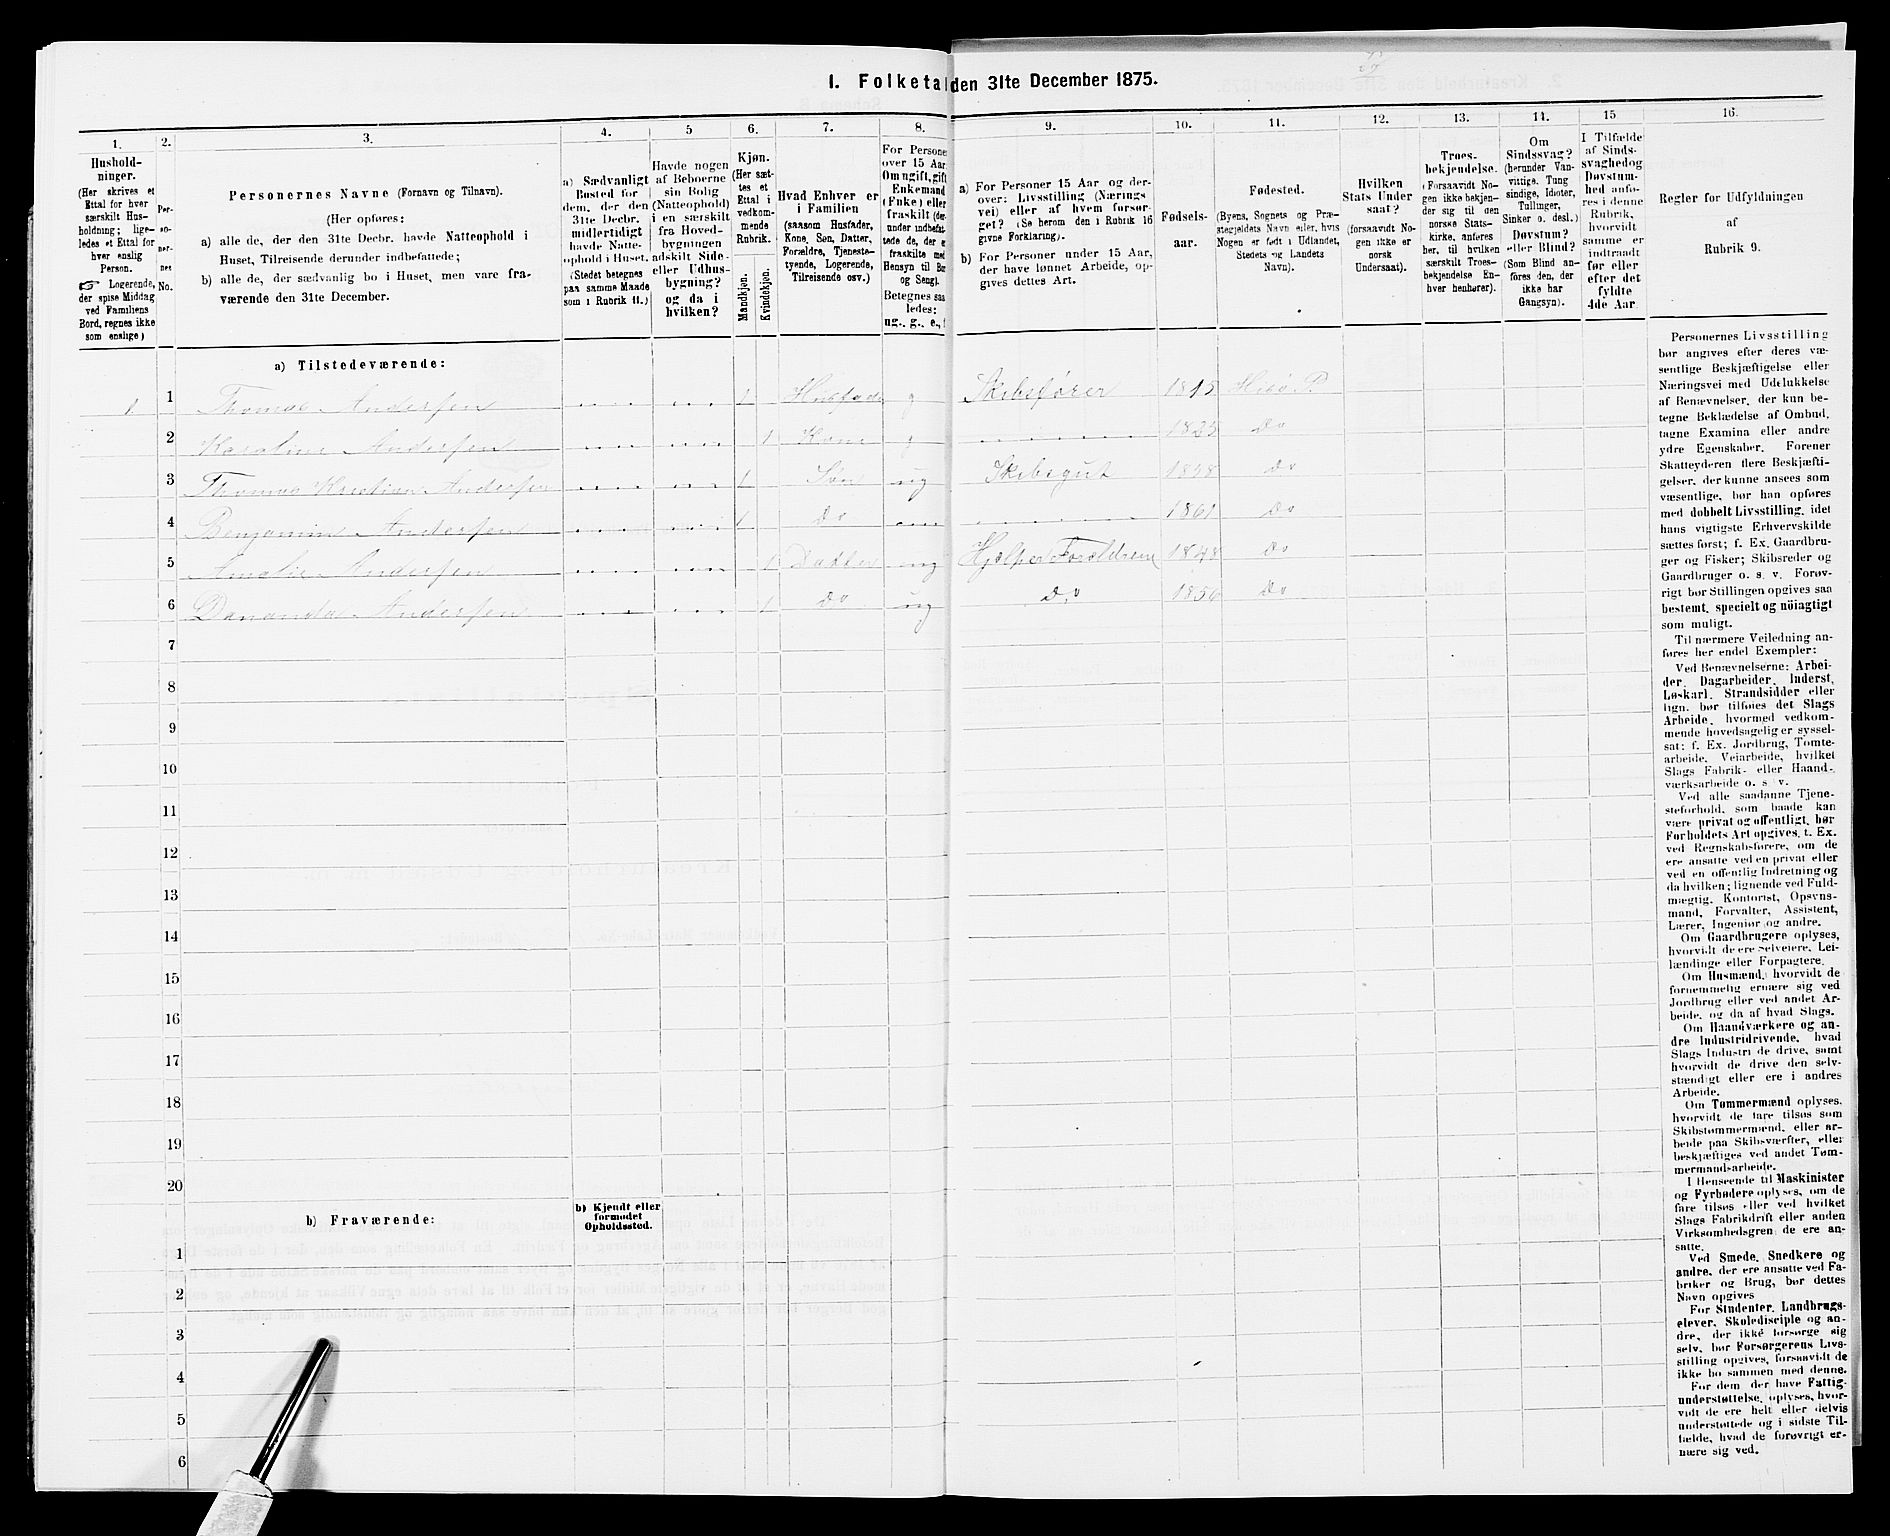 I. Folketal den 31te December 1875.
1.
2.
3.
4.
5
6.
7.
8.
9.
10.
11.
12.
13.
14.
15
16.
Hushold-
ninger.
(Her skrives et
Ettal for hver
særskilt Hus-
holdning; lige-
ledes et Ettal for
hver enslig
Person.
☞ Logerende,
der spise Middag
ved Familiens
Bord, regnes ikke
som enslige)
Per-
so-
ner-
nes
No.
Personernes Navne (Fornavn og Tilnavn).
(Her opføres:
a) alle de, der den 31te Decbr. havde Natteophold i
Huset, Tilreisende derunder indbefattede;
b) alle de, der sædvanlig bo i Huset, men vare fra-
værende den 31te December.
a) Sædvanligt
Bosted for
dem, der den
31te Decbr.
midlertidigt
havde Natte-
ophold i Huset.
(Stedet betegnes
paa samme Maade
som i Rubrik 11.)
Havde nogen
af Beboerne
sin Bolig
(Natteophold)
i en særskilt
fra Hoved-
bygningen
adskilt Side-
eller Udhus-
bygning?
og da i
hvilken?
Kjøn.
(Her sæt-
tes et
Ettal i
vedkom-
mende
Rubrik.
Mandkjøn.
Kvindekjøn.
Hvad Enhver er
i Familien
(saasom Husfader,
Kone, Søn, Datter,
Forældre, Tjeneste-
tyende, Logerende,
Tilreisende osv.)
For Persone
over 15 Aar
Om ugift, gift
Enkemand
(Enke) eller
fraskilt (der-
under indbefat-
tede de, der e
fraskilte med
Hensyn til Bor
og Seng).
Betegnes saa
ledes:
ug., g., e., f
a) For Personer 15 Aar og der-
over: Livsstilling (Nærings-
vei) eller af hvem forsør-
get? (Se herom den i Rubrik 16
givne Forklaring).
b) For Personer under 15 Aar,
der have lønnet Arbeide, op-
gives dettes Art.
Fødsels-
aar.
Fødested.
(Byens, Sognets og Præ-
stegjeldets Navn eller, hvis
Nogen er født i Udlandet,
Stedets og Landets
Navn).
Hvilken
Stats Under
saat?
(forsaavidt No-
gen ikke er
norsk
Undersaat).
Troes-
bekjendelse.
(Forsaavidt No-
gen ikke bekjen-
der sig til den
norske Stats-
kirke, anføres
her, til hvilken
særskilt Troes-
bekjendelse En-
hver henhører).
Om
Sindssvag?
(herunder Van-
vittige, Tung
sindige, Idioter,
Tullinger,
Sinker o. desl.)
Døvstum?
eller Blind?
(Som Blind an-
føres den, der
ikke har
Gangsyn).
I Tilfælde
af Sinds-
svaghed og
Døvstum-
hed anfø-
res i denne
Rubrik,
hvorvidt
samme er
indtraadt
før eller
efter det
fyldte
4de Aar.
Regler for Udfyldningen
af
Rubrik 9.
a) Tilstedeværende:
1 1 Thomas Andersen 1 Husfader g Skibsfører 1815 Hisø P
2 Karoline Andersen 1 Kone g 1825 Do
3 Thomas Kristian Andersen 1 Søn ug Skibsgut 1858 Do
4 Benjamin Andersen 1 Do 1861 Do
5 Amalie Andersen 1 Datter ug Hjælper Forældrene 1848 Do
6 Andersen 1 Do ug Do 1856 Do
7
8
9
10
11
12
13
14
15
16
17
18
19
20
b) Fraværende:
b) Kjendt eller
formodet
Opholdssted.
1
2
3
4
5
6
Personernes Livsstilling
bør angives efter deres væ-
sentlige Beskjæftigelse eller
Næringsvei med Udelukkelse
af Benævnelser, der kun be-
tegne Beklædelse af Ombud,
tagne Examina eller andre
ydre Egenskaber. Forener
Skatteyderen flere Beskjæfti-
gelser, der kunne ansees som
væsentlige, bør han opføres
med dobbelt Livsstilling, idet
hans vigtigste Erhvervskilde
sættes først; f. Ex. Gaardbru-
ger og Fisker; Skibsreder og
Gaardbruger o. s. v. Forøv-
rigt bør Stillingen opgives saa
bestemt, specielt og nöiagtigt
som muligt.
Til nærmere Veiledning an-
føres her endel Exempler:
Ved Benævnelserne: Arbei-
der, Dagarbeider, Inderst,
Løskarl, Strandsidder eller
lign. bør tilføies det Slags
Arbeide, hvormed vedkom-
mende hovedsagelig er syssel-
sat: f. Ex. Jordbrug, Tomte-
arbeide, Veiarbeide, hvilket
Slags Fabrik- eller Haand-
værksarbeide o. s. v.
Ved alle saadanne Tjene-
steforhold, som baade kan
være privat og offentligt, bør
Forholdets Art opgives, t. Ex.
ved Regnskabsførere, om de
ere ansatte ved en privat eller
ved en offentlig Indretning og
da hvilken; lignende ved Fuld-
mægtig, Kontorist, Opsyns-
mand, Forvalter, Assistent,
Lærer, Ingeniør og andre.
Om Gaardbrugere oplyses,
hvorvidt de ere Selveiere, Lei-
lændinge eller Forpagtere.
Om Husmænd, hvorvidt de
fornemmelig ernære sig ved
Jordbrug eller ved andet Ar-
beide, og da af hvad Slags.
Om Haandværkere og an-
dre Industridrivende, hvad
Slags Industri de drive, samt
hvorvidt de drive den selv-
stændigt eller ere i andres
Arbeide.
Om Tømmermænd oplyses,
hvorvidt de fare tilsøs som
Skibstømmermænd, eller ar-
beide paa Skibsværfter, eller
beskjæftiges ved andet Tøm-
mermandsarbeide.
I Henseende til Maskinister
og Fyrbødere oplyses, om de
fare tilsøs eller ved hvilket
Slags Fabrikdrift eller anden
Virksomhedsgren de ere an-
satte.
Ved Smede, Snedkere og
andre, der ere ansatte ved Fa-
briker og Brug, bør dettes
Navn opgives
For Studenter, Landbrugs-
elever, Skoledisciple og an-
dre, der ikke forsørge sig
selv, bør Forsørgerens Livs-
stilling opgives, forsaavidt de
ikke bo sammen med denne.
For dem, der have Fattig-
understøttelse, oplyses, hvor-
vidt de ere helt eller delvis
understøttede og i sidste Til-
fælde, hvad de forøvrigt er-
nære sig ved.